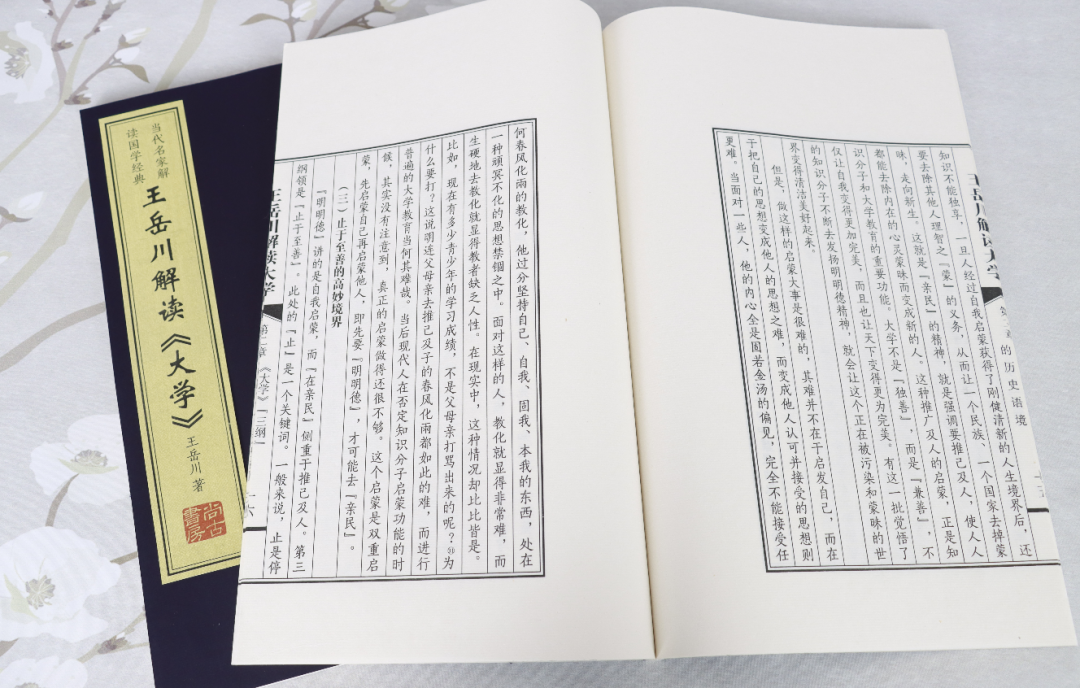 当代名家解
读国学经典
王岳川解读《大学》
王岳川 著
尚古
書房
王岳川解读大学
的历史语境
知识不能独享，一旦人经过自我启蒙获得了刚健清新的人生境界后，还
要去除其他人理智之『蒙』的义务，从而让一个民族、一个国家去掉蒙
昧，走向新生。这就是『亲民』的精神，就是强调要推己及人，使人人
都能去除内在的心灵蒙昧而变成新的人。这种推广及人的启蒙，正是知
识分子和大学教育的重要功能。大学不是『独善』，而是『兼善』，不
仅让自我变得更加完美，而且也让天下变得更为完美。有这一批觉悟了
的知识分子不断去发扬明明德精神，就会让这个正在被污染和蒙昧的世
界变得清洁美好起来。
但是，做这样的启蒙大事是很难的，其难并不在于启发自己，而在
于把自己的思想变成他人的思想之难，而变成他人认可并接受的思想则
更难。当面对一些人，他的内心全是固若金汤的偏见，完全不能接受任
何春风化雨的教化，他过分坚持自己、自我、固我、本我的东西，处在
一种顽冥不化的思想禁锢之中。面对这样的人，教化就显得非常难，而
生硬地去教化就显得教者缺乏人性。在现实中，这种情况却比比皆是。
比如，现在有多少青少年的学习成绩，不是父母亲打骂出来的呢？为
什么要打？这说明连父母亲去推己及子的春风化雨都如此的难，而进行
普遍的大学教育当何其难哉。当后现代人在否定知识分子启蒙功能的时
候，其实没有注意到，真正的启蒙做得还很不够。这个启蒙是双重启
蒙，先启蒙自己再启蒙他人，即先要『明明德』，才可能去『亲民』。
（三）止于至善的高妙境界
『明明德』讲的是自我启蒙，而『在亲民』侧重于推己及人。第三
纲领是『止于至善』。此处的『止』是一个关键词。一般来说，止是停
王岳川解读大学
第二章 《大学》『三纲』
一六